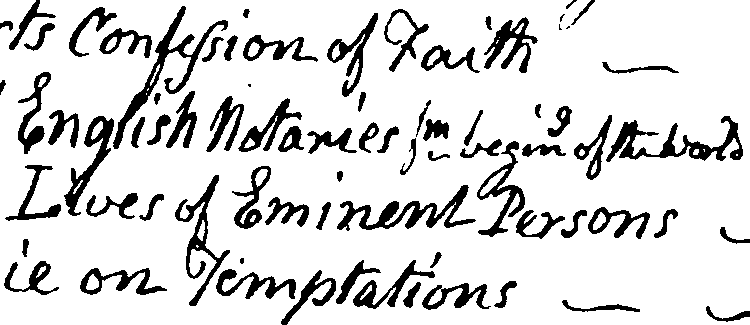 ts Confeſsion of Faith —
English Notaries fm beging of the World
Lives of Eminent Persons —
ie on Temptations — —